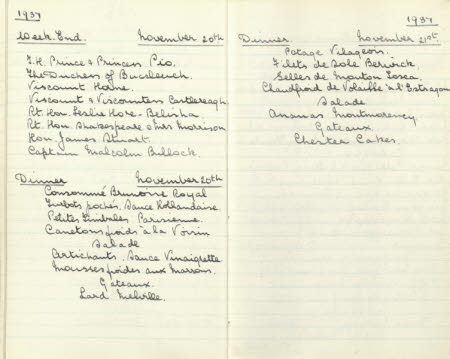 1937
Week. End. November 20th
T.H. Prince & Princess Pio.
The Duchess of Buccleuch.
Viscount Horne.
Viscount & Viscountess Castlereagh.
Rt. Hon. Leslie Hore. Belisha.
Rt. Hon. Shakespeare & Mrs Morrison
Hon. James Stuart.
Captain Malcolm Bullock.
Dinner November 20th
Consommé Brunoise Royal
Turbots pochés. Sauce Hollandaise.
Petites Timbales Parisienne.
Canetons froids à la Voisin
Salade
Artichauts. Sauce Vinaigrette
Mousses froides aux Marrons.
Gateaux.
Lard Melville.
1937
Dinner. November 21st.
Potage Villageois.
Filets de Sole
Selles de Mouton
Chaudfroid de Volaille à l'Estragon
Salade
Ananas Montmorency
Gateaux
Chester Cakes.